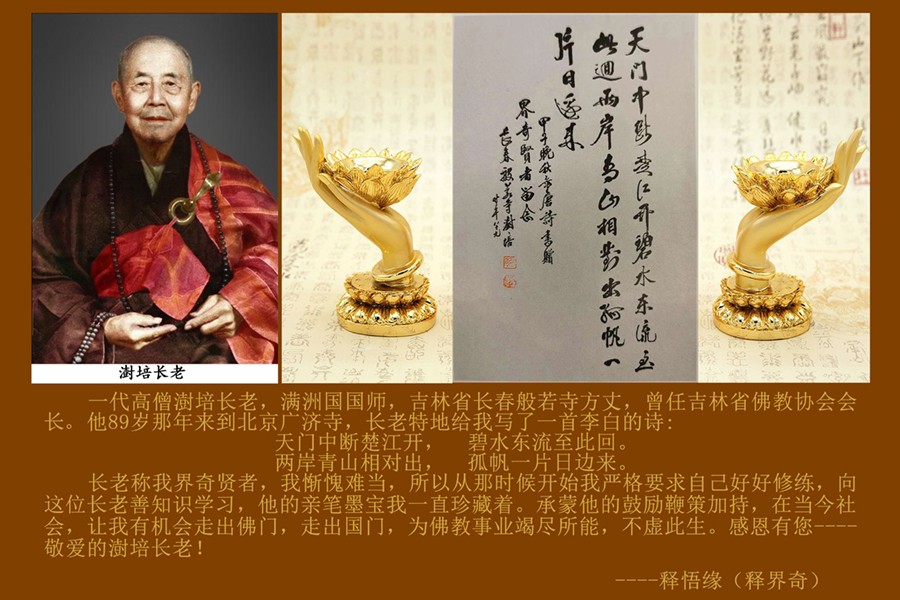 澍培长老
天门中断楚江开碧水东流至
此迴兩岸青山相對出孤帆一
片日邊来
晚秋 唐詩書贈
界奇賢者留念
长春般若寺澍培
一代高僧澍培长老，满洲国国师，吉林省长春般若寺方丈，曾任吉林省佛教协会会
长。他89岁那年来到北京广济寺，长老特地给我写了一首李白的诗:
天门中断楚江开， 碧水东流至此回。
两岸青山相对出， 孤帆一片日边来。
长老称我界奇贤者，我惭愧难当，所以从那时候开始我严格要求自己好好修练，向
这位长老善知识学习，他的亲笔墨宝我一直珍藏着。承蒙他的鼓励鞭策加持，在当今社
会，让我有机会走出佛门，走出国门，为佛教事业竭尽所能，不虚此生。感恩有您----
敬爱的澍培长老！
----释悟缘（释界奇）